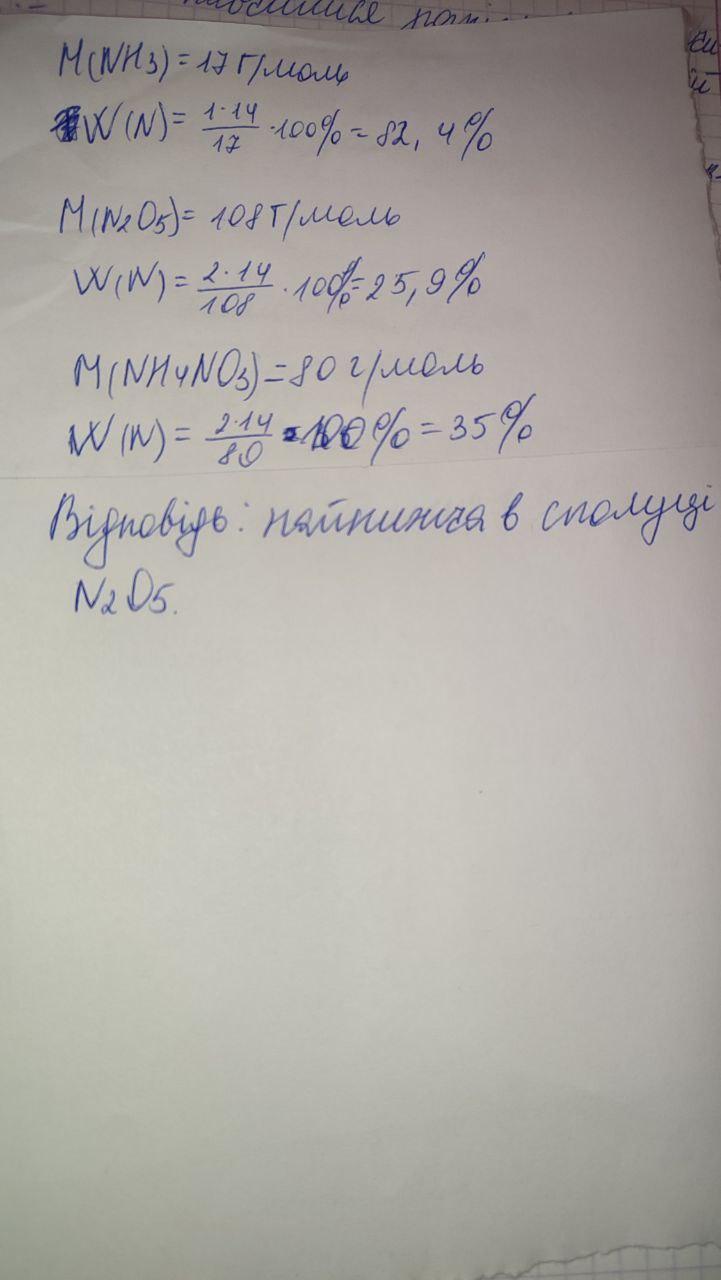 M(NH3)=17г/моль
W(N)= 1·14/17 ·100%=82,4%
M(N2O5)=108г/моль
W(N)= 2·14/108 ·100%=25,9%
M(NH4NO3)=80г/моль
W(N)= 2·14/80 ·100%=35%
Відповідь: найнижча в сполуці
N2O5.